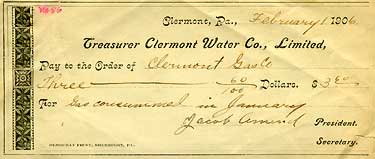 Clermont, Pa., February 1 1906
Treasurer Clermont Water Co., Limited,
Pay to the Order of Clermont Gas Co
Three 60/100 Dollars. $3.60
For Gas consummed in January
Jacob
President.
Secretary.
DEMOCRAT PRINT, SMETHPORT, PA.